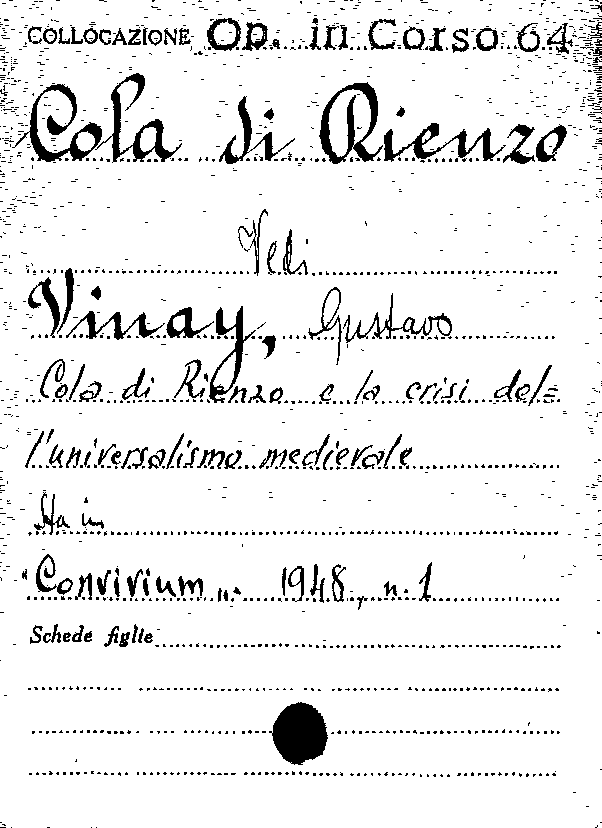 COLLOCAZIONE Op. in Corso 64
Cola di Rienzo
Vedi
Vinay, Gustavo
Cola di Rienzo e la crisi del=
l'universalismo medievale
Sta in
"Convivium„. 1948, n. 1
Schede figlie